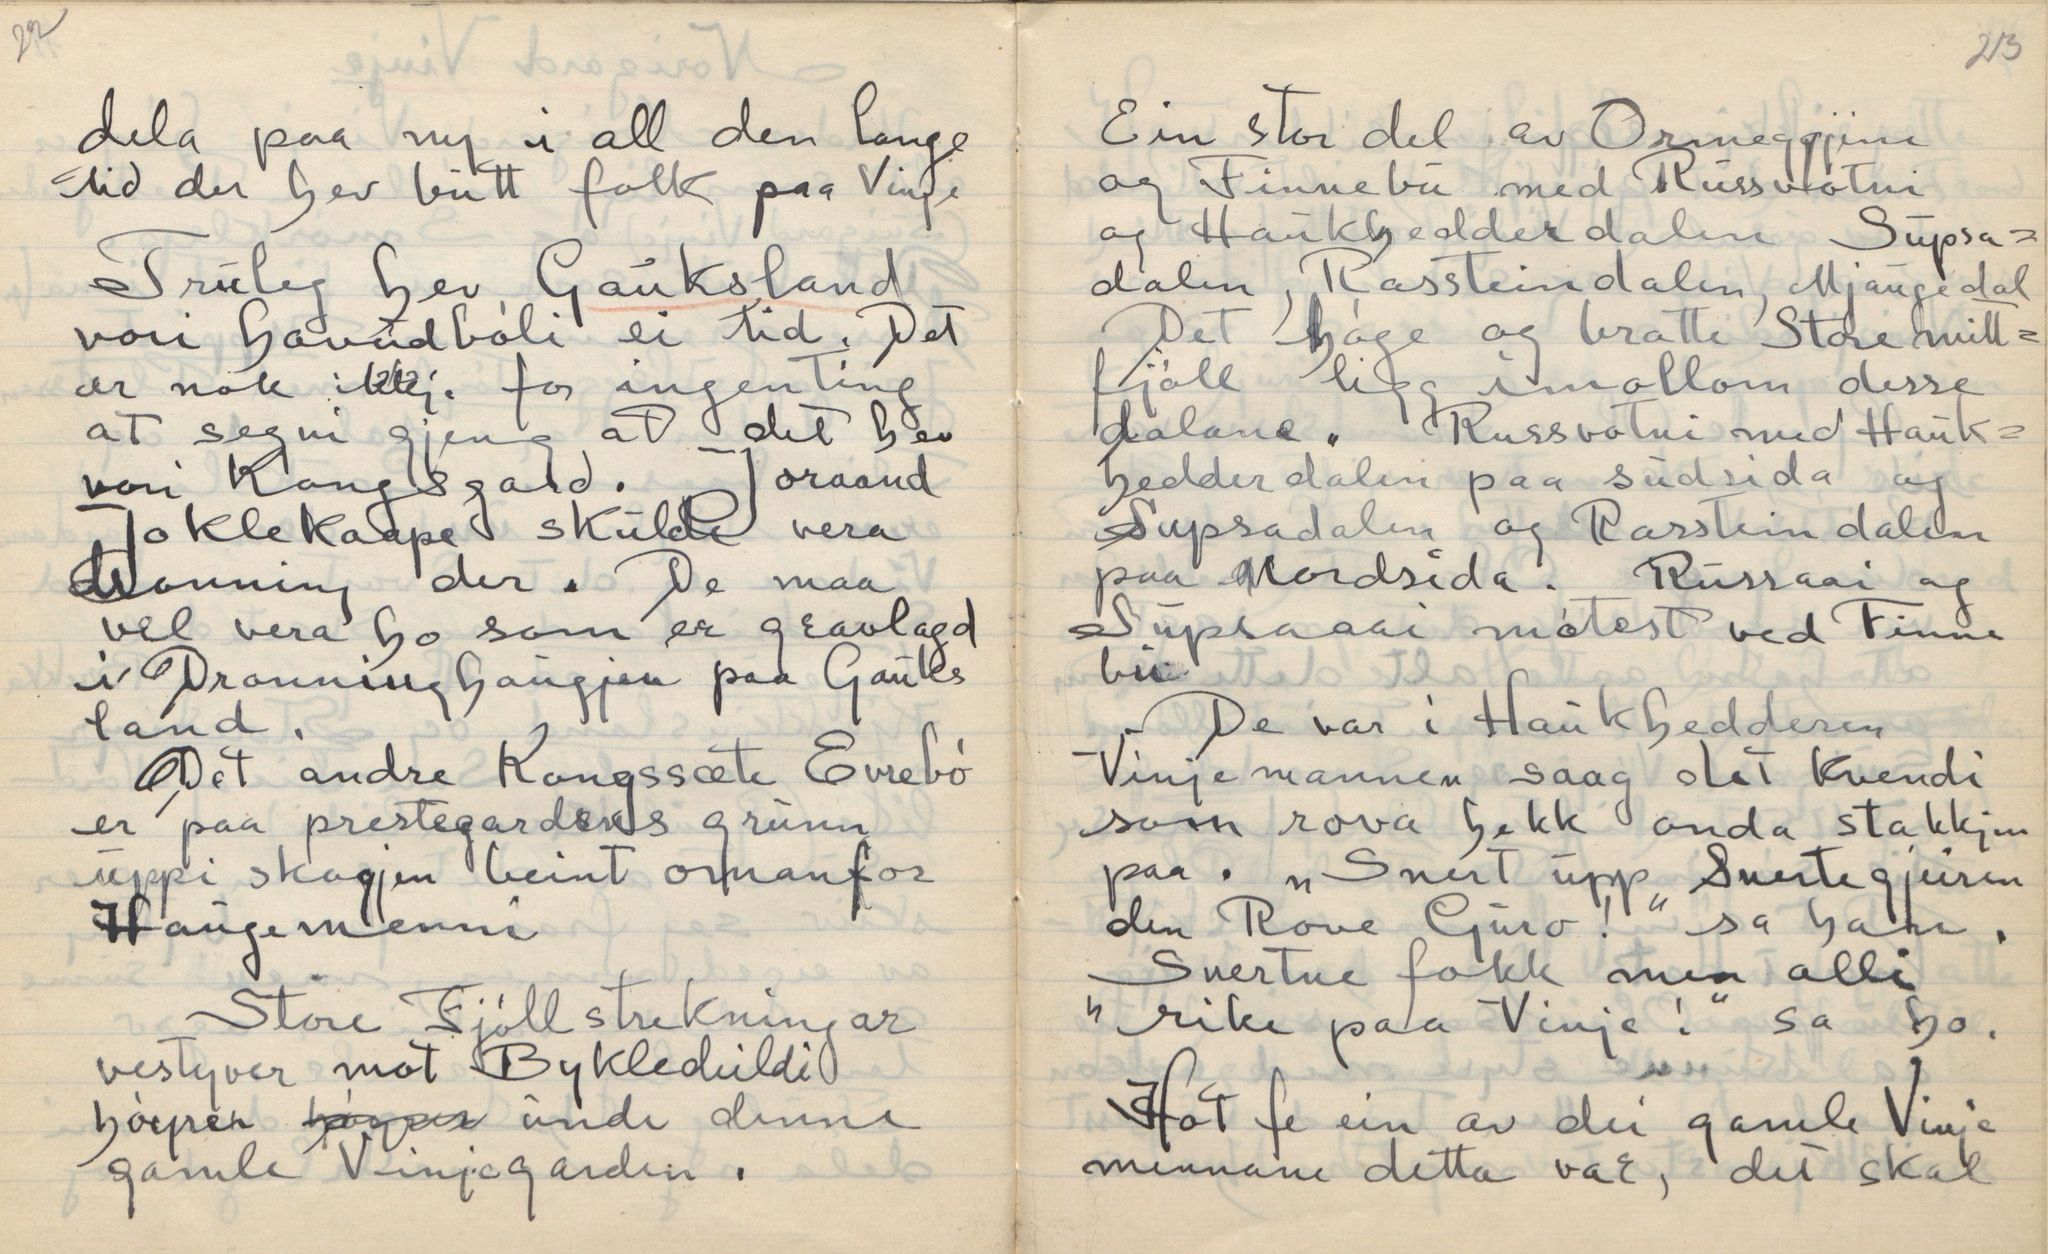 212
dela paa ny i all den lange
tid der hev bûtt folk paa Vinje
Trûleg hev Gaûksland
vori havûdbóli ei tid. Det
er nok ikkj. for ingenting
at segni gjeng at det hev
vori Kongsgard. Joraand
Joklekaape skûlde vera
dronning der. De maa
vel vera ho som er gravlagd
i Dronninghaûgjen paa Gaûks
land.
Det andre Kongssæte Evrebó
er paa prestegardens grûnn
ûppi skogjen beint ornanfor
Haûgemenni
Store Fjöllstrekningar
vestyver mot Bykledeildi
hóyrer ûnde denne
gamle Vinjegarden.
213
Ein stor del av Ormeggjine
og Finnebû med Rûssvotni
og Haûkhedderdalen Sûpsa=
dalen, Rassteindalen, Mjaûgedal
Det hóge og bratte Store mitt=
fjöll ligg imollom desse
dalane. Russvotni med Haûk=
hedderdalen paa sûdsida og
Sûpsadalen og Rassteindalen
paa Nordsida. Rûssaai og
Sûpsaaai mótest ved Finne
bû
De var i Haûkhedderen
Vinjemannen saag det Kvendi
som rova hekk onda stakkjen
paa. „Snert ûpp Snertegjeiren
den Rove Gûro!" sa han.
Snertne fokk men alli
„rike paa Vinje!" sa ho.
Hót fe ein av dei gamle Vinje
mennane detta var, det skal